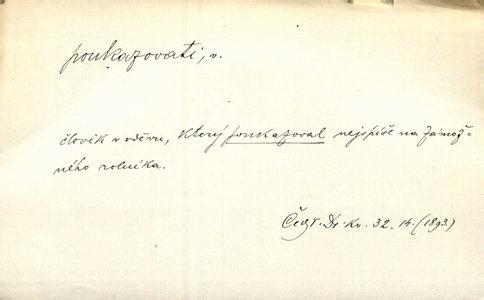 poukazovati, v.
člověk v oděvu, který poukazoval nejspíše na zámož-
ného rolníka.
Kv. 32. 14. (1893.)